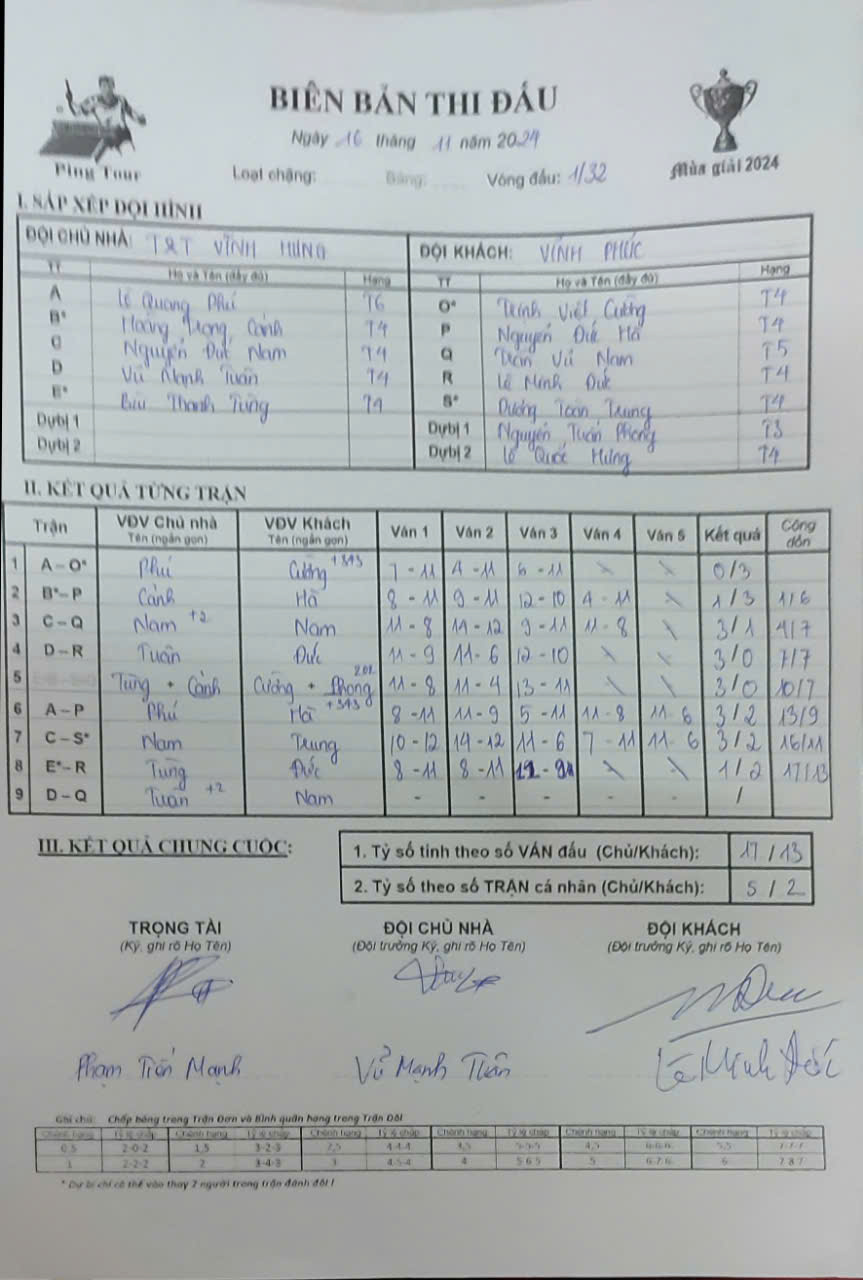 BIÊN BẢN THI ĐẤU
Ngày 16 tháng 11 năm 2024
Ping Tour
Loại chặng: Bảng: Vòng đấu: 1/32
Mùa giải 2024
I. SẮP XẾP ĐỘI HÌNH
ĐỘI CHỦ NHÀ: T&T VĨNH HƯNG ĐỘI KHÁCH: VĨNH PHÚC
TT Họ và Tên (đầy đủ) Hạng TT Họ và Tên (đầy đủ) Hạng
A Lê Quang Phú T6 O* Trịnh Việt Cường T4
B* Hoàng Trọng Cảnh T4 P Nguyễn Đức Hà T4
C Nguyễn Đức Nam T4 Q Trần Vũ Nam T5
D Vũ Mạnh Tuân T4 R Lê Minh Đức T4
E* Bùi Thanh Tùng T4 S* Dương Toàn Trung T4
Dự bị 1 Dự bị 1 Nguyễn Tuấn Phong T3
Dự bị 2 Dự bị 2 Lê Quốc Hưng T4
II. KẾT QUẢ TỪNG TRẬN
Trận VĐV Chủ nhà VĐV Khách Ván 1 Ván 2 Ván 3 Ván 4 Ván 5 Kết quả Cộng dồn
Tên (ngắn gọn) Tên (ngắn gọn)
1 A – O* Phú Cường +343 7 - 11 4 - 11 6 - 11 \ \ 0/3
2 B* – P Cảnh Hà 8 - 11 9 - 11 12 - 10 4 - 11 \ 1/3 1/6
3 C – Q Nam +2 Nam 11 - 8 14 - 12 9 - 11 11 - 8 \ 3/1 4/7
4 D – R Tuân Đức 11 - 9 11 - 6 12 - 10 \ \ 3/0 7/7
5 Tùng + Cảnh Cường + Phong 202 11 - 8 11 - 4 13 - 11 \ \ 3/0 10/7
6 A – P Phú Hà +343 8 - 11 11 - 9 5 - 11 11 - 8 11 - 6 3/2 13/9
7 C – S* Nam Trung 10 - 12 14 - 12 11 - 6 7 - 11 11 - 6 3/2 16/11
8 E* – R Tùng Đức 8 - 11 8 - 11 \ \ 1/2 17/13
9 D – Q Tuân +2 Nam - - - - - /
III. KẾT QUẢ CHUNG CUỘC:
1. Tỷ số tính theo số VÁN đấu (Chủ/Khách): 17 / 13
2. Tỷ số theo số TRẬN cá nhân (Chủ/Khách): 5 / 2
TRỌNG TÀI ĐỘI CHỦ NHÀ ĐỘI KHÁCH
(Ký, ghi rõ Họ Tên) (Đội trưởng Ký, ghi rõ Họ Tên) (Đội trưởng Ký, ghi rõ Họ Tên)
Phạm Tiến Mạnh Vũ Mạnh Tuân Lê Minh Đức
Ghi chú: Chấp bóng trong Trận Đơn và Bình quân hạng trong Trận Đôi
Chênh hạng Tỷ lệ chấp Chênh hạng Tỷ lệ chấp Chênh hạng Tỷ lệ chấp Chênh hạng Tỷ lệ chấp Chênh hạng Tỷ lệ chấp Chênh hạng Tỷ lệ chấp
0,5 2-0-2 1,5 3-2-3 2,5 4-4-4 3,5 5-5-5 4,5 6-6-6 5,5 7-7-7
1 2-2-2 2 3-4-3 3 4-5-4 4 5-6-5 5 6-7-6 6 7-8-7
* Dự bị chỉ có thể vào thay 2 người trong trận đánh đôi !